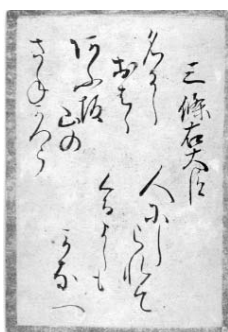 三條右大臣
名にし
おはゝ
あふ坂
山の
さねかつら
人にしられて
くるよしも
かな